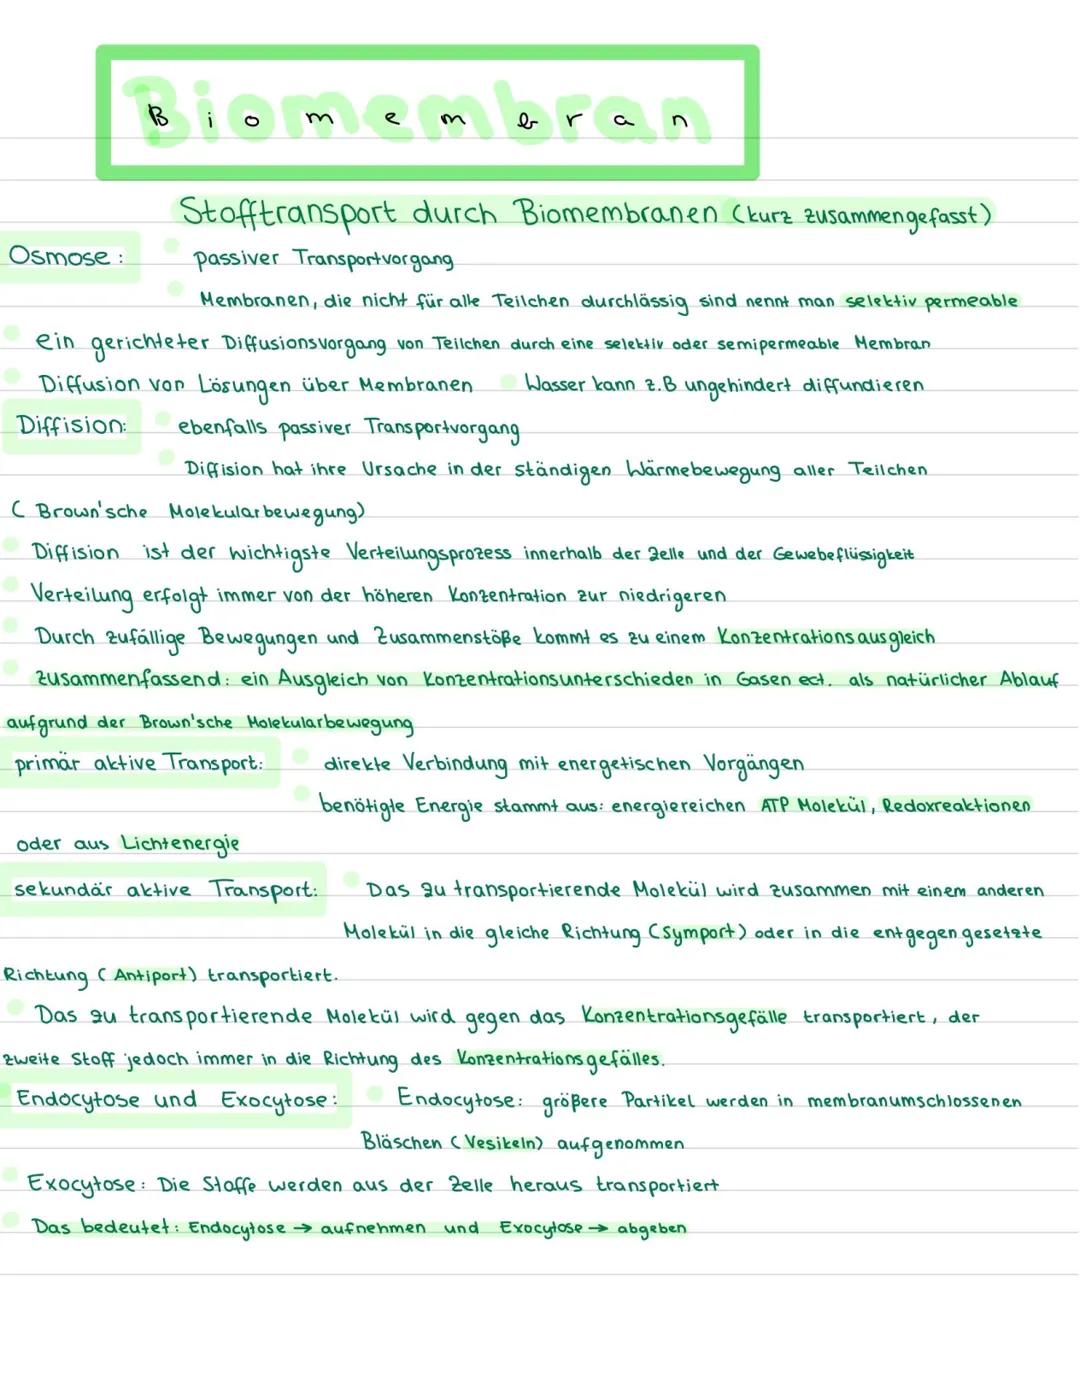 Biomembran
Stofftransport durch Biomembranen (kurz zusammengefasst)
Osmose: passiver Transportvorgang
Membranen, die nicht für alle Teilchen durchlässig sind nennt man selektiv permeable
ein gerichteter Diffusionsvorgang von Teilchen durch eine selektiv oder semipermeable Membran
Diffusion von Lösungen über Membranen Wasser kann z.B ungehindert diffundieren
Diffision: ebenfalls passiver Transportvorgang
Diffision hat ihre Ursache in der ständigen Wärmebewegung aller Teilchen
( Brown'sche Molekularbewegung)
Diffision ist der wichtigste Verteilungsprozess innerhalb der Zelle und der Gewebeflüssigkeit
Verteilung erfolgt immer von der höheren Konzentration zur niedrigeren
Durch zufällige Bewegungen und Zusammenstöße kommt es zu einem Konzentrationsausgleich
zusammenfassend: ein Ausgleich von Konzentrationsunterschieden in Gasen ect. als natürlicher Ablauf
aufgrund der Brown'sche Molekularbewegung
primär aktive Transport: direkte Verbindung mit energetischen Vorgängen
benötigte Energie stammt aus: energiereichen ATP Molekül, Redoxreaktionen
oder aus Lichtenergie
sekundär aktive Transport: Das zu transportierende Molekül wird zusammen mit einem anderen
Molekül in die gleiche Richtung (Symport) oder in die entgegengesetzte
Richtung (Antiport) transportiert.
Das zu transportierende Molekül wird gegen das Konzentrationsgefälle transportiert, der
zweite Stoff jedoch immer in die Richtung des Konzentrationsgefälles.
Endocytose und Exocytose: Endocytose: größere Partikel werden in membranumschlossenen
Bläschen (Vesikeln) aufgenommen
Exocytose: Die Stoffe werden aus der Zelle heraus transportiert
Das bedeutet: Endocytose → aufnehmen und Exocytose → abgeben